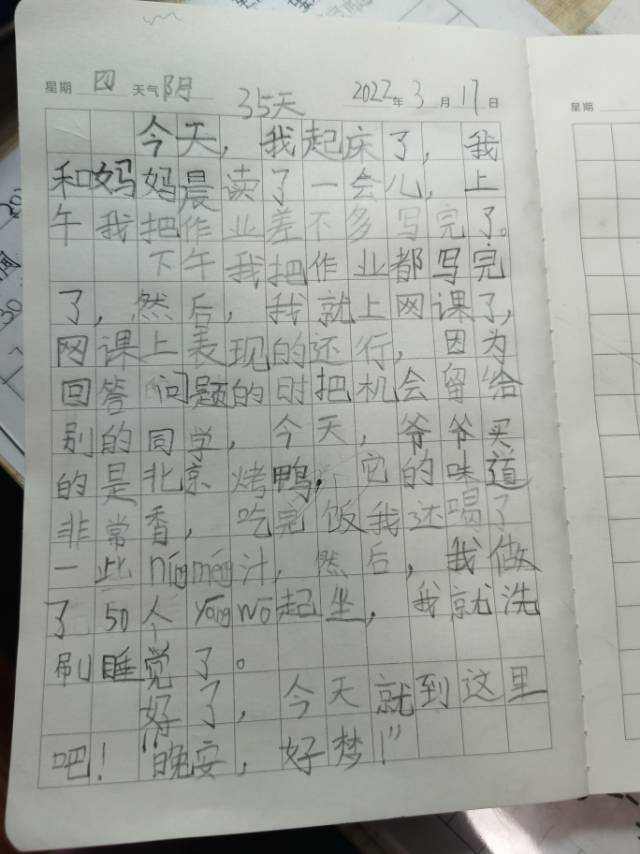 星期 四 天气 阴 35天 2022年 3月 17日 星期
今天，我起床了，我
和妈妈晨读了一会儿，上
午我把作业差不多写完了。
下午我把作业都写完
了，然后，我就上网课了，
网课上表现的还行，因为
回答问题的时把机会留给
别的同学，今天，爷爷买
的是北京烤鸭，它的味道
非常香，吃完饭我还喝了
一些níngméng汁，然后，我做
了50个yǎngwò起坐，我就洗
刷睡觉了。
好了，今天就到这里
吧！“晚安，好梦！”